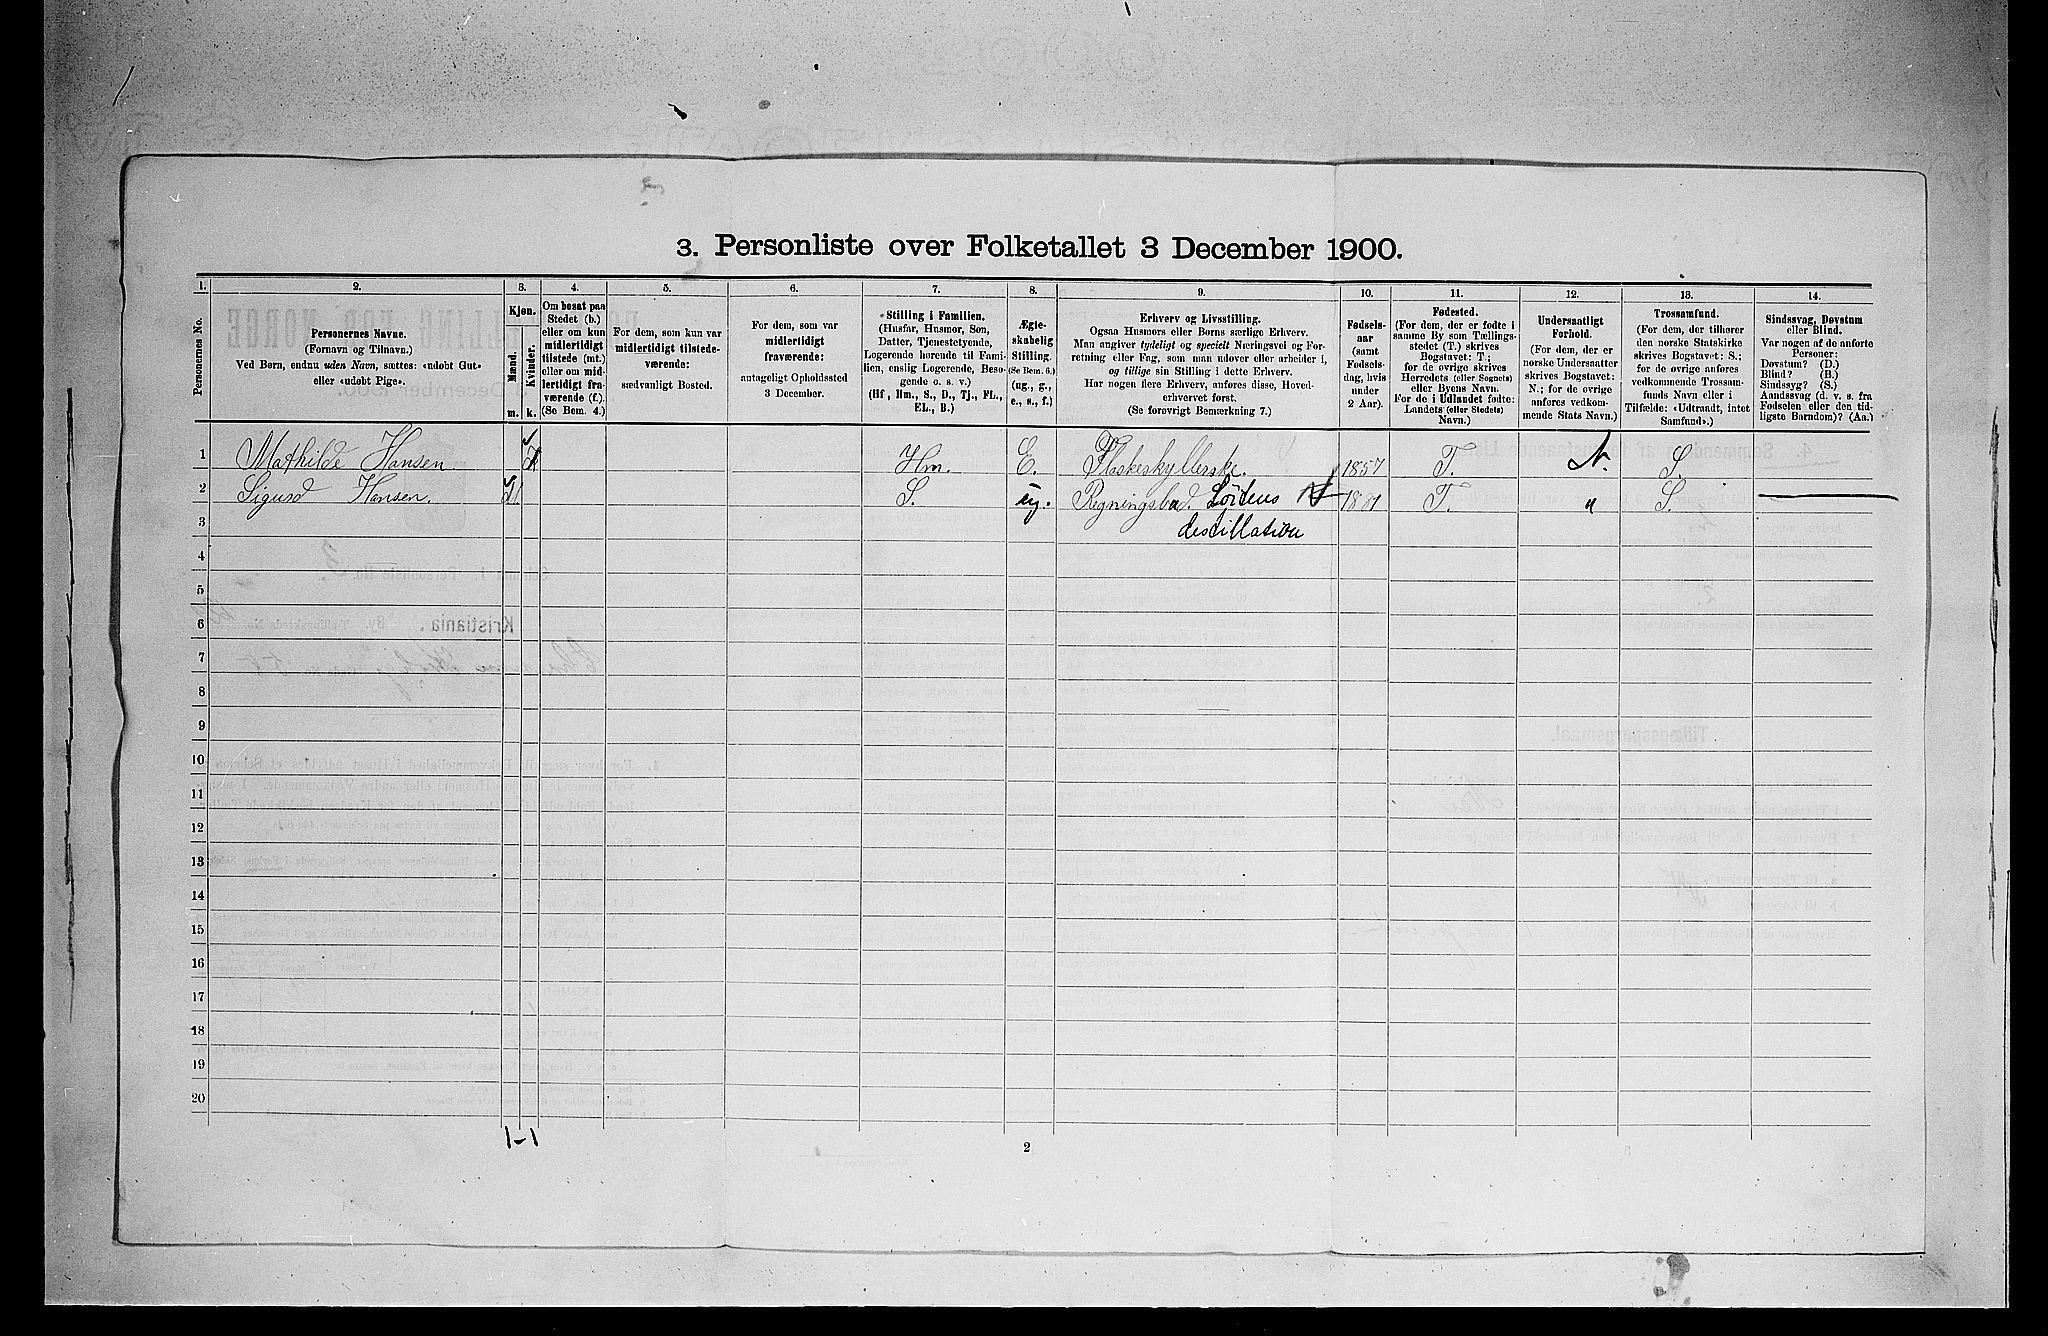 3. Personliste over Folketallet 3 December 1900.
1. 2. 3. 4. 5. 6. 7. 8. 9. 10. 11. 12. 13. 14.
Personernes No.
Personernes Navne.
(Fornavn og Tilnavn.)
Ved Børn, endnu uden Navn, sættes: «udøbt Gut»
eller «udøbt Pige».
Kjøn.
Mænd.
Kvinder.
m. k.
Om bosat paa
Stedet (b.)
eller om kun
midlertidigt
tilstede (mt.)
eller om mid-
lertidigt fra-
værende (f.).
(Se Bem. 4.)
For dem, som kun var
midlertidigt tilstede-
værende:
sædvanligt Bosted.
For dem, som var
midlertidigt
fraværende:
antageligt Opholdssted
3 December.
Stilling i Familien.
(Husfar, Husmor, Søn,
Datter, Tjenestetyende,
Logerende hørende til Fami-
lien, enslig Logerende, Besø-
gende o. s. v.)
(Hf, Hm., S., D., Tj., FL.,
EL., B.)
Ægte-
skabelig
Stilling.
(Se Bem. 6.)
(ug., g.,
e., s., f.)
Erhverv og Livsstilling.
Ogsaa Husmors eller Børns særlige Erhverv.
Man angiver tydeligt og specielt Næringsvei og For-
retning eller Fag, som man udover eller arbeider i,
og tillige sin Stilling i dette Erhverv.
Har nogen flere Erhverv, anføres disse, Hoved-
erhvervet først.
(Se forøvrigt Bemærkning 7.)
Fødsels-
aar
(samt
Fødsels-
dag, hvis
under
2 Aar).
Fødested.
(For dem, der er fødte i
samme By som Tællings-
stedet (T.) skrives
Bogstavet: T.;
for de øvrige skrives
Herredets (eller Sognets)
eller Byens Navn.
For de i Udlandet fødte:
Landets (eller Stedets)
Navn.)
Undersaatligt
Forhold.
(For dem, der er
norske Undersaatter
skrives Bogstavet:
N.; for de øvrige
anføres vedkom-
mende Stats Navn.)
Trossamfund.
(For dem, der tilhører
den norske Statskirke
skrives Bogstavet: S.;
for de øvrige anføres
vedkommende Trossam-
funds Navn eller i
Tilfælde: «Udtraadt, intet
Samfund».)
Sindssvag, Døvstum
eller Blind.
Var nogen af de anførte
Personer:
Døvstum? (D.)
Blind? (B.)
Sindssyg? (S.)
Aandssvag (d. v. s. fra
Fødselen eller den tid-
ligste Barndom)? (Aa.)
1 Mathilde Hansen K Hm. E. Flaskeskyllerske. 1857 T. N. S.
2 Sigurd Hansen. S. ug. Regningsbud. Løitens 1881 T. " S.
destillation
3
4
5
6
7
8
9
10
11
12
13
14
15
16
17
18
19
20
1-1
2